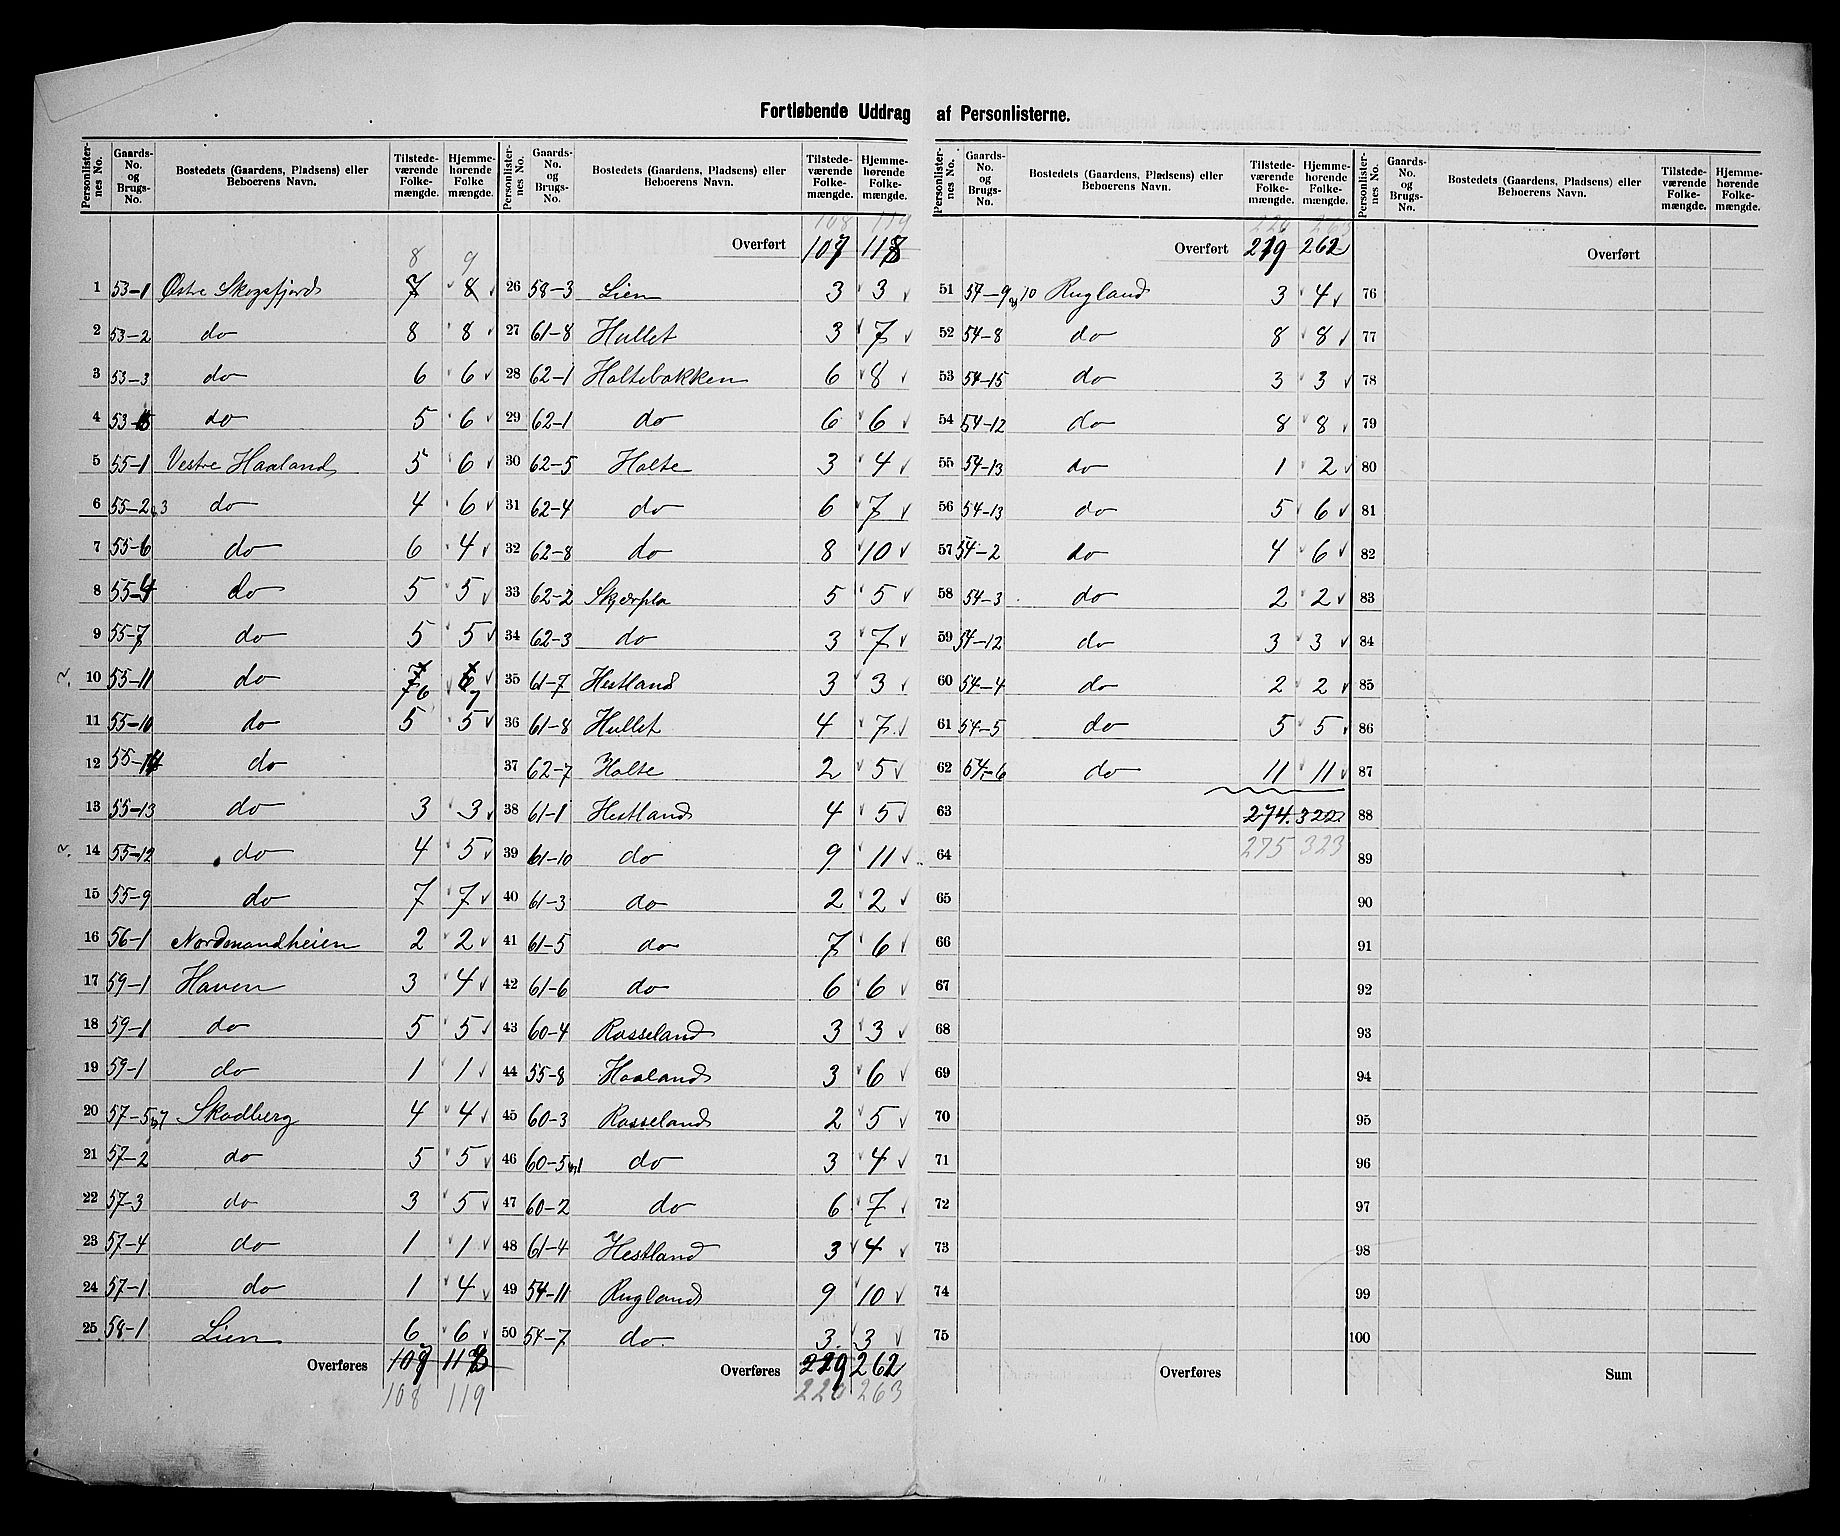 Fortløbende Uddrag af Personlisterne.
Personlister-nes No. | Gaards-No. og Brugs-No. | Bostedets (Gaardens, Pladsens) eller Beboerens Navn. | Tilstede-værende Folke-mængde. | Hjemme-hørende Folke mængde.
8 9
1 53-1 Østre Skogsfjord 7 8
2 53-2 do 8 8
3 53-3 do 6 6
4 53-5 do 5 6
5 55-1 Vestre Haaland 5 6
6 55-2,3 do 4 6
7 55-6 do 6 4
8 55-4 do 5 5
9 55-7 do 5 5
10 55-11 do 7 6 7
11 55-10 do 5 5
12 55-14 do
13 55-13 do 3 3
14 55-12 do 4 5
15 55-9 do 7 7
16 56-1 Nordmandheien 2 2
17 59-1 Haven 3 4
18 59-1 do 5 5
19 59-1 do 1 1
20 57-5 og 7 Skadberg 4 4
21 57-2 do 5 5
22 57-3 do 3 5
23 57-4 do 1 1
24 57-1 do 1 4
25 58-1 Lien 6 6
Overføres 107 118
108 119
Personlister-nes No. | Gaards-No. og Brugs-No. | Bostedets (Gaardens, Pladsens) eller Beboerens Navn. | Tilstede-værende Folke-mængde. | Hjemme-hørende Folke-mængde.
108 119
Overført 107 118
26 58-3 Lien 3 3
27 61-8 Hullet 3 7
28 62-1 Holtebakken 6 8
29 62-1 do 6 6
30 62-5 Holte 3 4
31 62-4 do 6 7
32 62-8 do 8 10
33 62-2 Skjærpla 5 5
34 62-3 do 3 7
35 61-7 Hestland 3 3
36 61-8 Hullet 4 7
37 62-7 Holte 2 5
38 61-1 Hestland 4 5
39 61-10 do 9 11
40 61-3 do 2 2
41 61-5 do 7 6
42 61-6 do 6 6
43 60-4 Rosseland 3 3
44 55-8 Haaland 3 6
45 60-3 Rosseland 2 5
46 60-5 og 1 do 3 4
47 60-2 do 6 7
48 61-4 Hestland 3 4
49 54-11 Rugland 9 10
50 54-7 do 3 3
Overføres 219 262
220 263
Personlister-nes No. | Gaards-No. og Brugs-No. | Bostedets (Gaardens, Pladsens) eller Beboerens Navn. | Tilstede-værende Folke-mængde. | Hjemme-hørende Folke-mængde.
220 263
Overført 219 262
51 54-9 og 10 Rugland 3 4
52 54-8 do 8 8
53 54-15 do 3 3
54 54-12 do 8 8
55 54-13 do 1 2
56 54-13 do 5 6
57 54-2 do 4 6
58 54-3 do 2 2
59 54-12 do 3 3
60 54-4 do 2 2
61 54-5 do 5 5
62 54-6 do 11 11
63 274 322
64 275 323
65
66
67
68
69
70
71
72
73
74
75
Overføres
Personlister-nes No. | Gaards-No. og Brugs-No. | Bostedets (Gaardens, Pladsens) eller Beboerens Navn. | Tilstede-værende Folke-mængde. | Hjemme-hørende Folke-mængde.
Overført
76
77
78
79
80
81
82
83
84
85
86
87
88
89
90
91
92
93
94
95
96
97
98
99
100
Sum